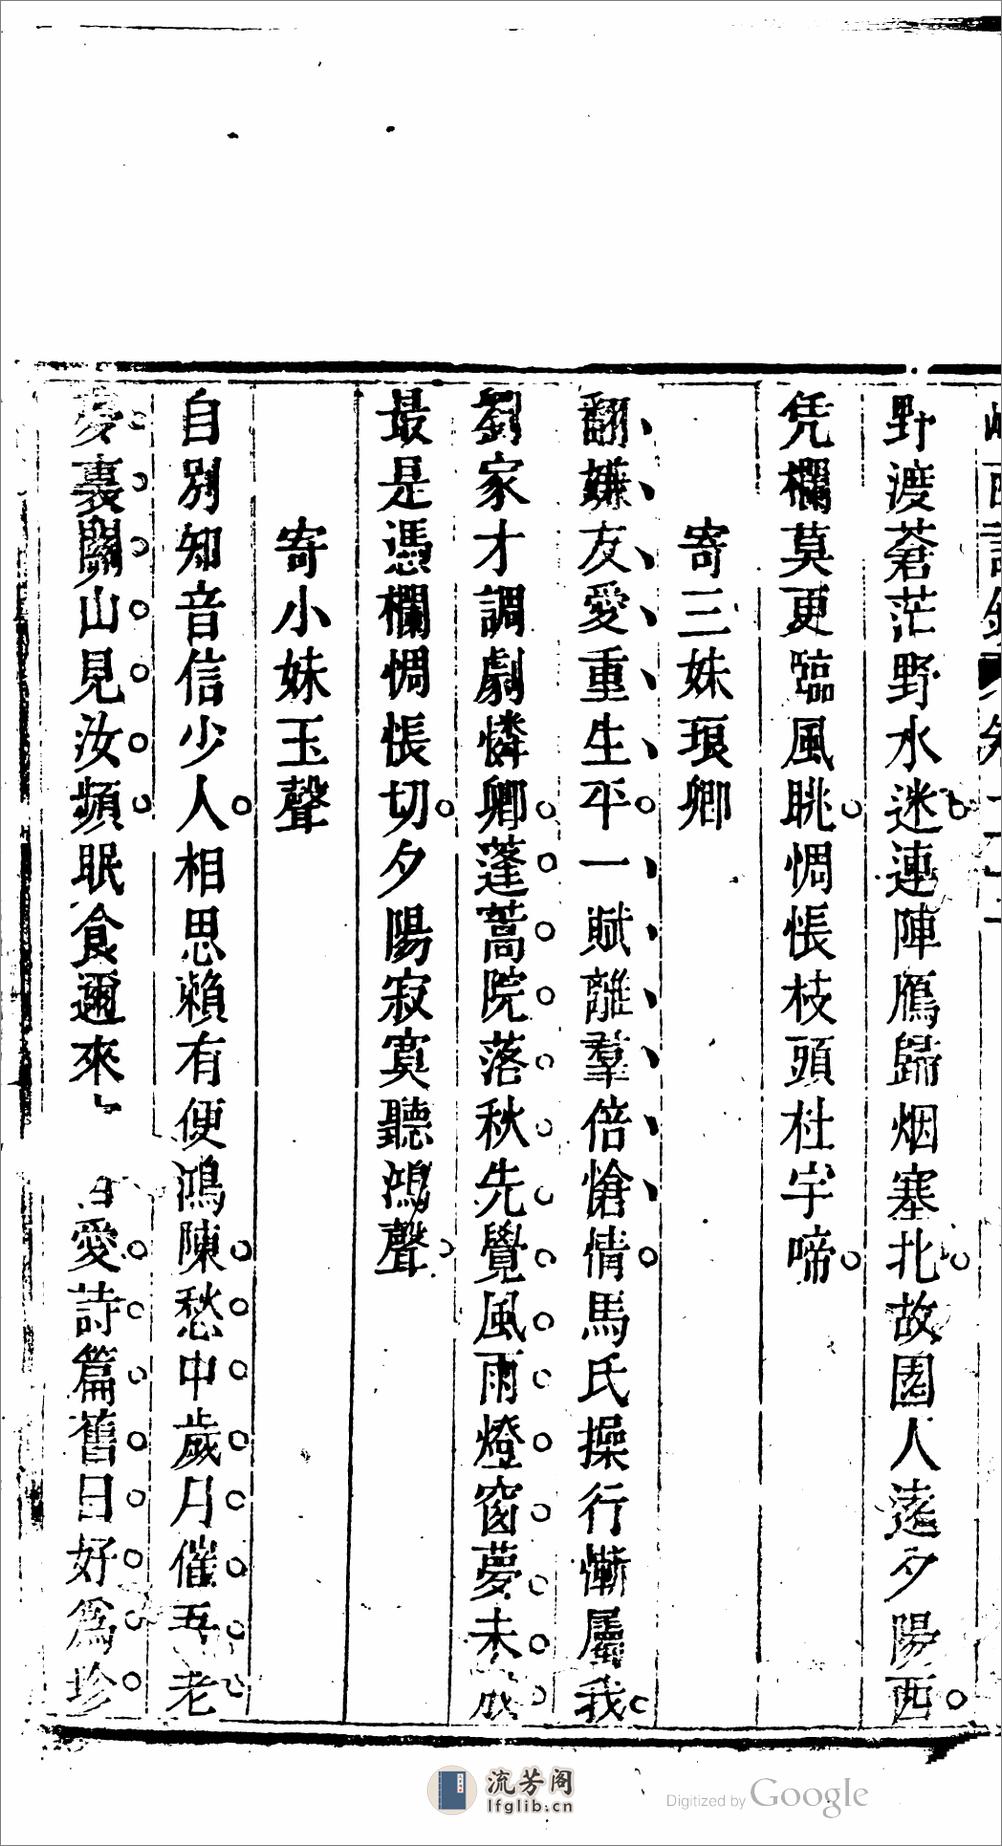 野渡蒼茫野水迷連陣鴈歸烟塞北故園人遠夕陽西
凭欄莫更臨風眺惆悵枝頭杜宇啼
寄三妹琅卿
翻嫌友愛重生平一賦離羣倍愴情馬氏操行慚屬我
劉家才調劇憐卿蓬蒿院落秋先覺風雨燈窗夢未成
最是憑欄惆悵切夕陽寂寞聽鴻聲
寄小妹玉聲
自別知音信少人相思賴有便鴻陳愁中歲月催吾老
夢裏關山見汝頻眠食邇來 愛詩篇舊日好爲珍
流芳阁
lfglib.cn
Digitized by Google